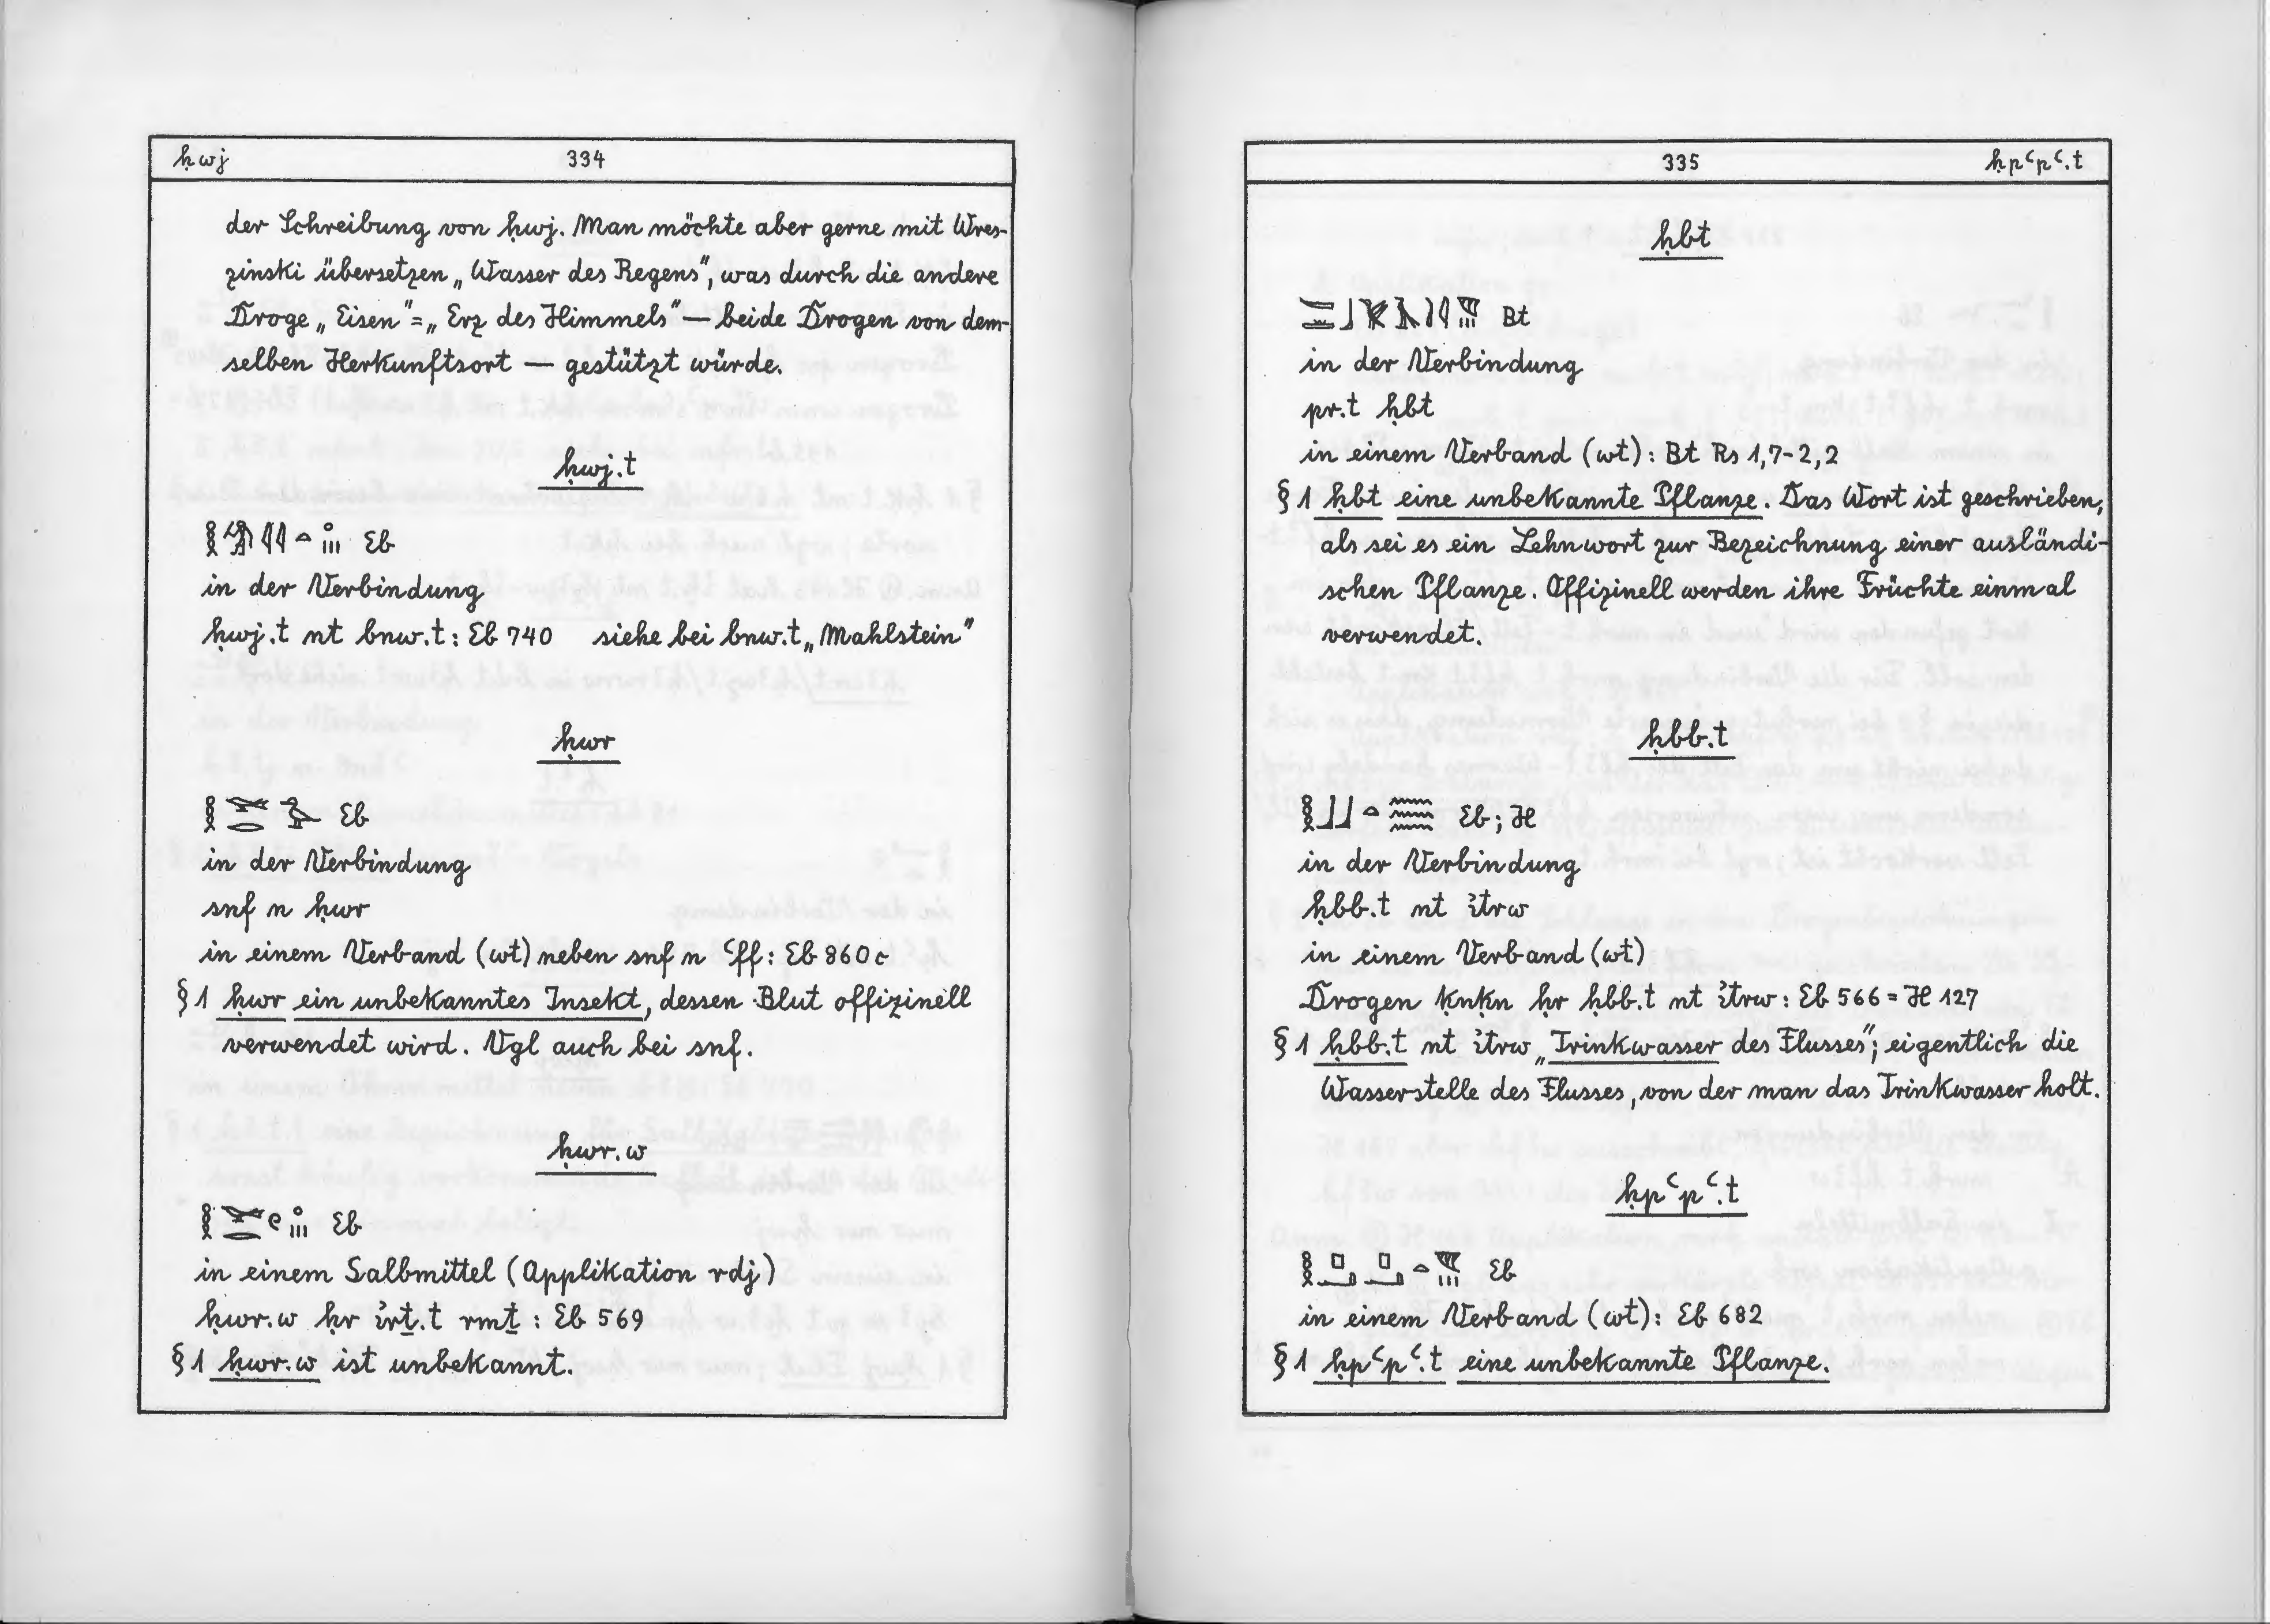 ḥwj 334
der Schreibung von ḥwj. Man möchte aber gerne mit Wres-
zinski übersetzen „Wasser des Regens", was durch die andere
Droge „Eisen" = „Erz des Himmels" — beide Drogen von dem-
selben Herkunftsort — gestützt würde.
ḥwj.t
Eb
in der Verbindung
ḥwj.t nt bnw.t: Eb 740 siehe bei bnw.t „Mahlstein"
ḥwr
Eb
in der Verbindung
snf n ḥwr
in einem Verband (wt) neben snf n ꜥff: Eb 860 c
§ 1 ḥwr ein unbekanntes Insekt, dessen Blut offizinell
verwendet wird. Vgl auch bei snf.
ḥwr.w
Eb
in einem Salbmittel (Applikation rdj)
ḥwr.w ḥr ỉrṯ.t rmṯ : Eb 569
§ 1 ḥwr.w ist unbekannt.
335 ḥpꜥpꜥ.t
ḥbt
Bt
in der Verbindung
pr.t ḥbt
in einem Verband (wt): Bt Rs 1,7-2,2
§ 1 ḥbt eine unbekannte Pflanze. Das Wort ist geschrieben,
als sei es ein Lehnwort zur Bezeichnung einer ausländi-
schen Pflanze. Offizinell werden ihre Früchte einmal
verwendet.
ḥbb.t
Eb; H
in der Verbindung
ḥbb.t nt ỉtrw
in einem Verband (wt)
Drogen ḳnḳn ḥr ḥbb.t nt ỉtrw: Eb 566 = H 127
§ 1 ḥbb.t nt ỉtrw „Trinkwasser des Flusses"; eigentlich die
Wasserstelle des Flusses, von der man das Trinkwasser holt.
ḥpꜥpꜥ.t
Eb
in einem Verband (wt): Eb 682
§ 1 ḥpꜥpꜥ.t eine unbekannte Pflanze.